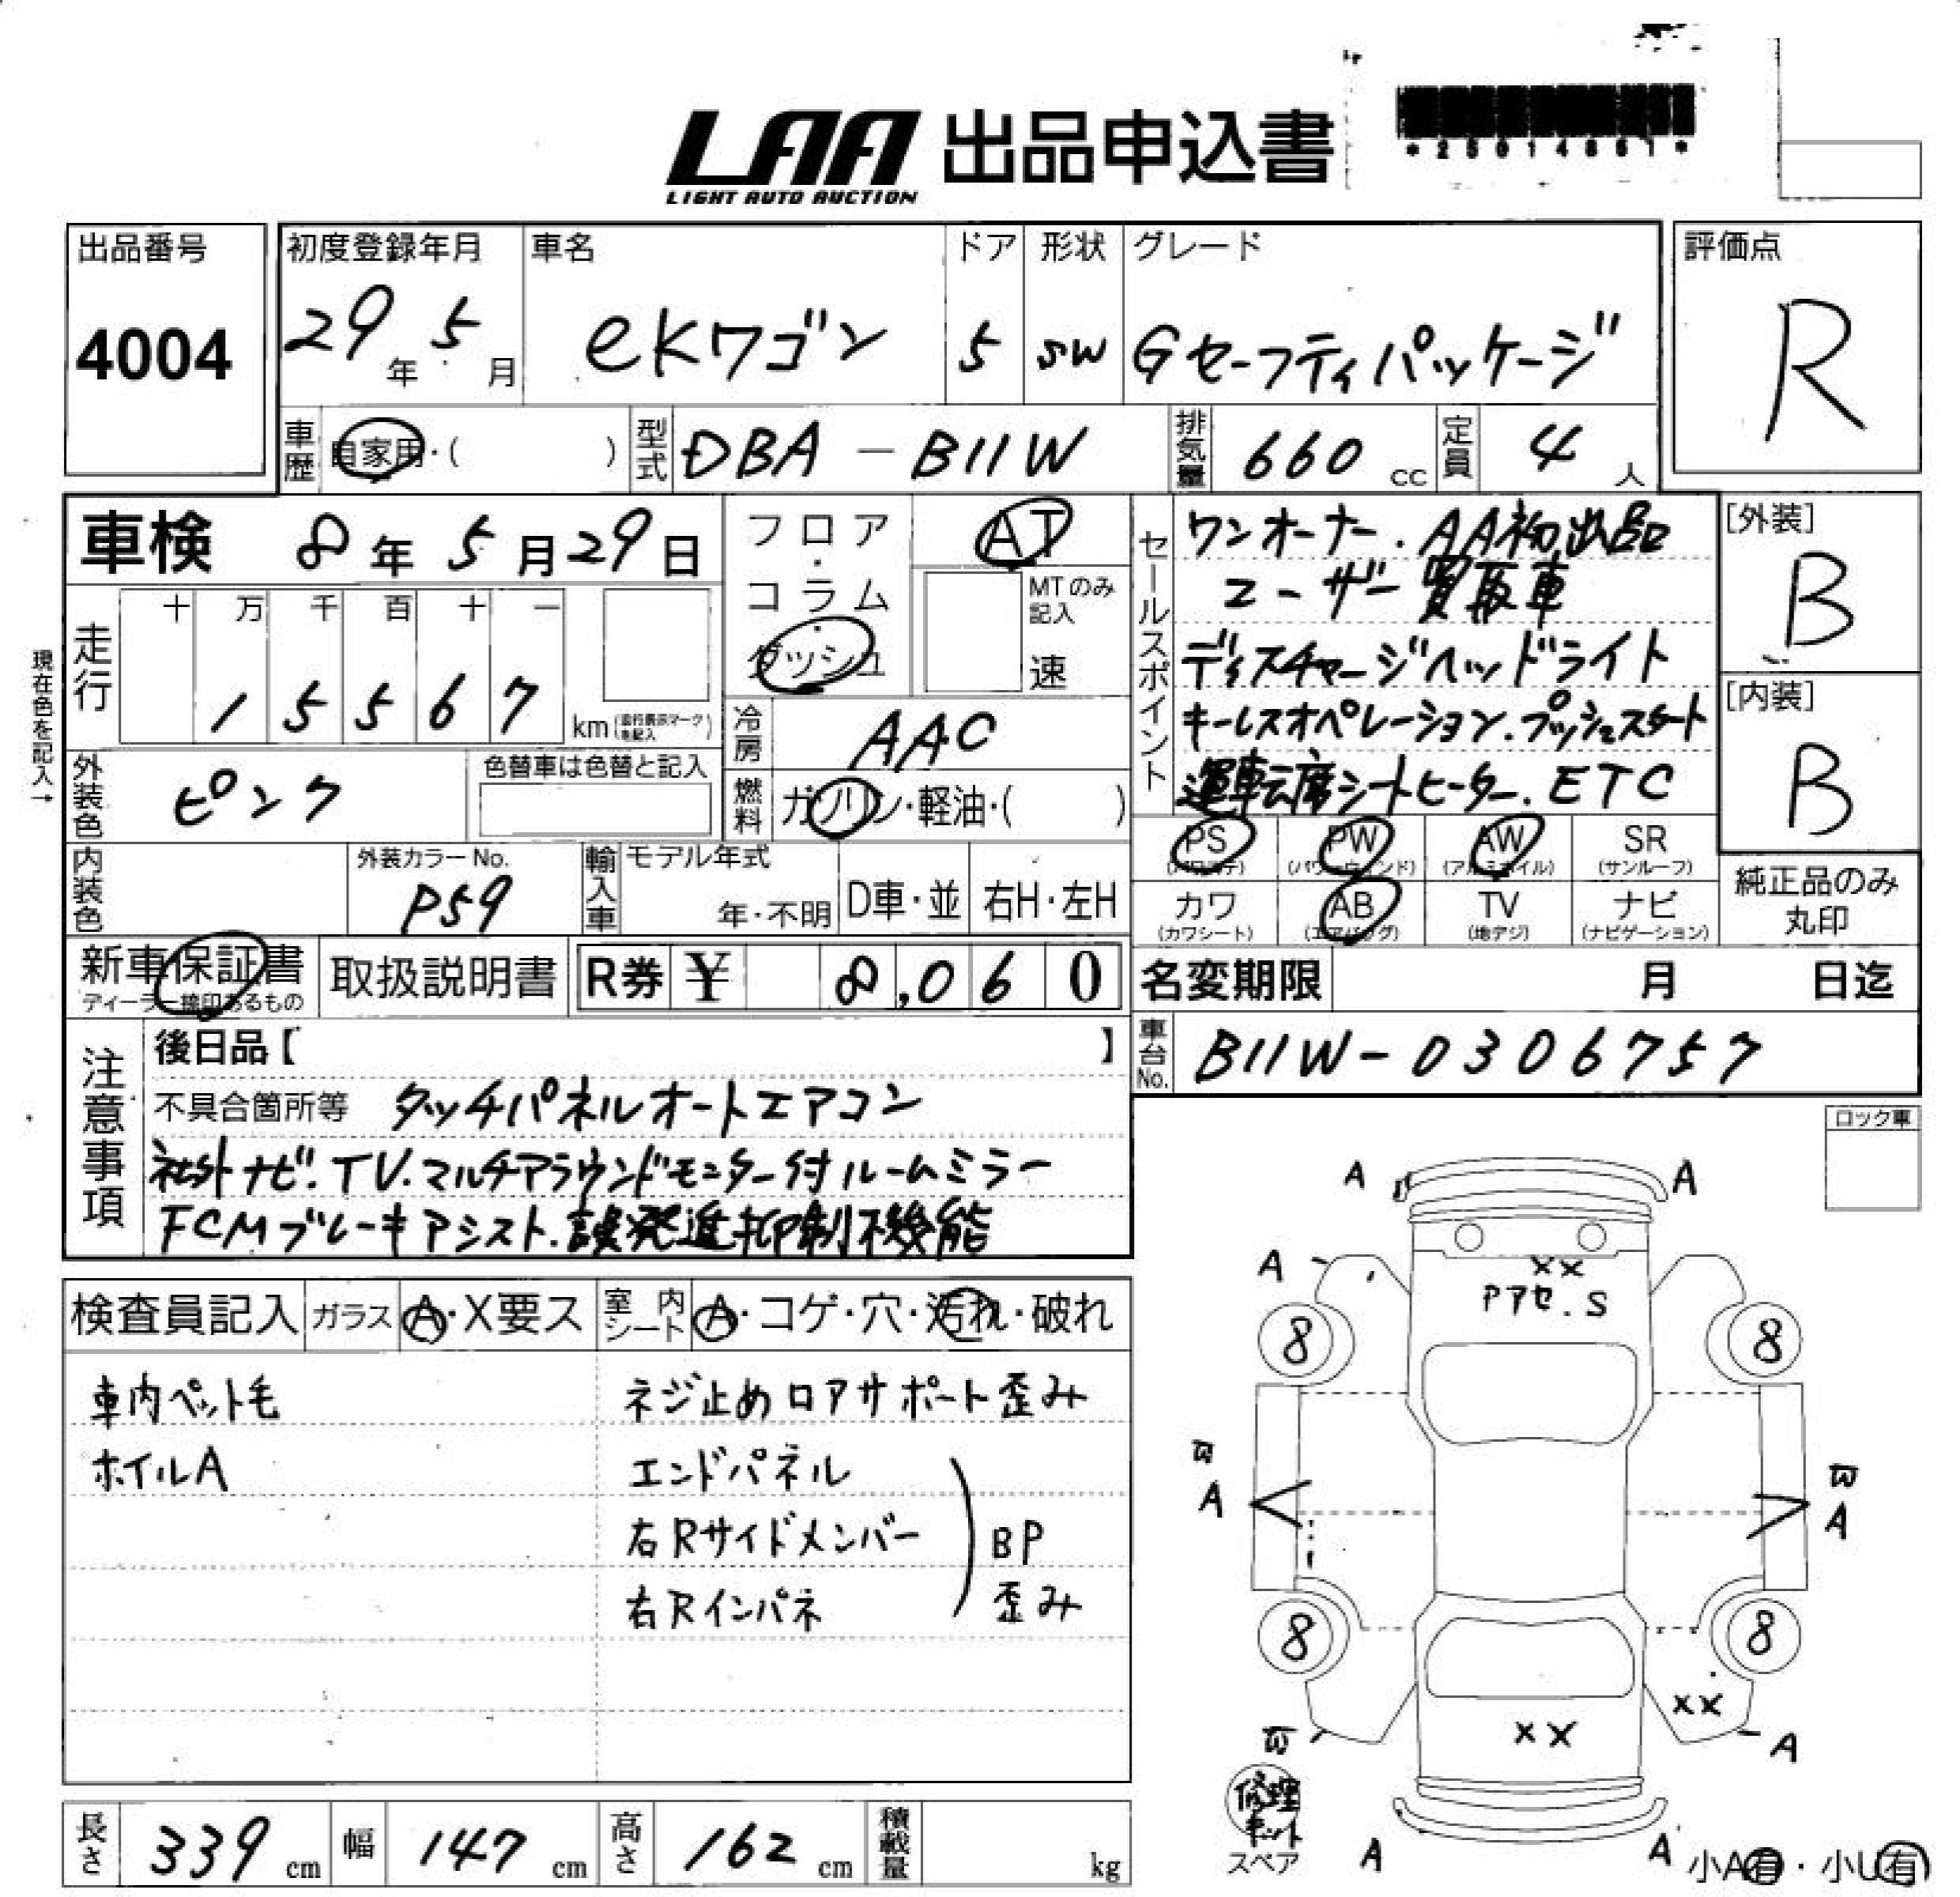 LAA 出品申込書
LIGHT AUTO AUCTION
*25014861*
出品番号
4004
初度登録年月
29年5月
車名
eKワゴン
ドア
5
形状
SW
グレード
Gセーフティパッケージ
評価点
R
車歴
自家用・( )
型式
DBA-B11W
排気量
660 cc
定員
4人
車検 8年5月29日
フロア・コラム・ダッシュ
AT
MTのみ記入
速
セールスポイント
ワンオーナー.AA初出品
ユーザー買取車
ディスチャージヘッドライト
キーレスオペレーション.プッシュスタート
運転席シートヒーター.ETC
[外装]
B
[内装]
B
現在色を記入→
走行
十 万 千 百 十 一
1 5 5 6 7
km(走行表示マークを記入)
冷房
AAC
外装色
ピンク
色替車は色替と記入
燃料
ガソリン・軽油・( )
PS (パワステ)
PW (パワーウィンド)
AW (アルミホイル)
SR (サンルーフ)
カワ (カワシート)
AB (エアバッグ)
TV (地デジ)
ナビ (ナビゲーション)
純正品のみ丸印
内装色
外装カラーNo.
P59
輸入車
モデル年式
年・不明
D車・並
右H・左H
新車保証書
ディーラー捺印あるもの
取扱説明書
R券 ¥ 8,060
名変期限 月 日迄
車台No.
B11W-0306757
注意事項
後日品【 】
不具合箇所等 タッチパネルオートエアコン
社外ナビ.TV.マルチアラウンドモニター付ルームミラー
FCMブレーキアシスト.誤発進抑制機能
ロック車
検査員記入
ガラス A・X要ス
室内シート A・コゲ・穴・汚れ・破れ
車内ペット毛
ホイルA
ネジ止めロアサポート歪み
エンドパネル
右Rサイドメンバー
右Rインパネ
BP
歪み
A A
A
XX
Pアセ.S
8 8
W
A
W
A
8 8
XX
XX
W
A
修理キット
スペア
A A
小A有・小U有
長さ 339 cm
幅 147 cm
高さ 162 cm
積載量 kg